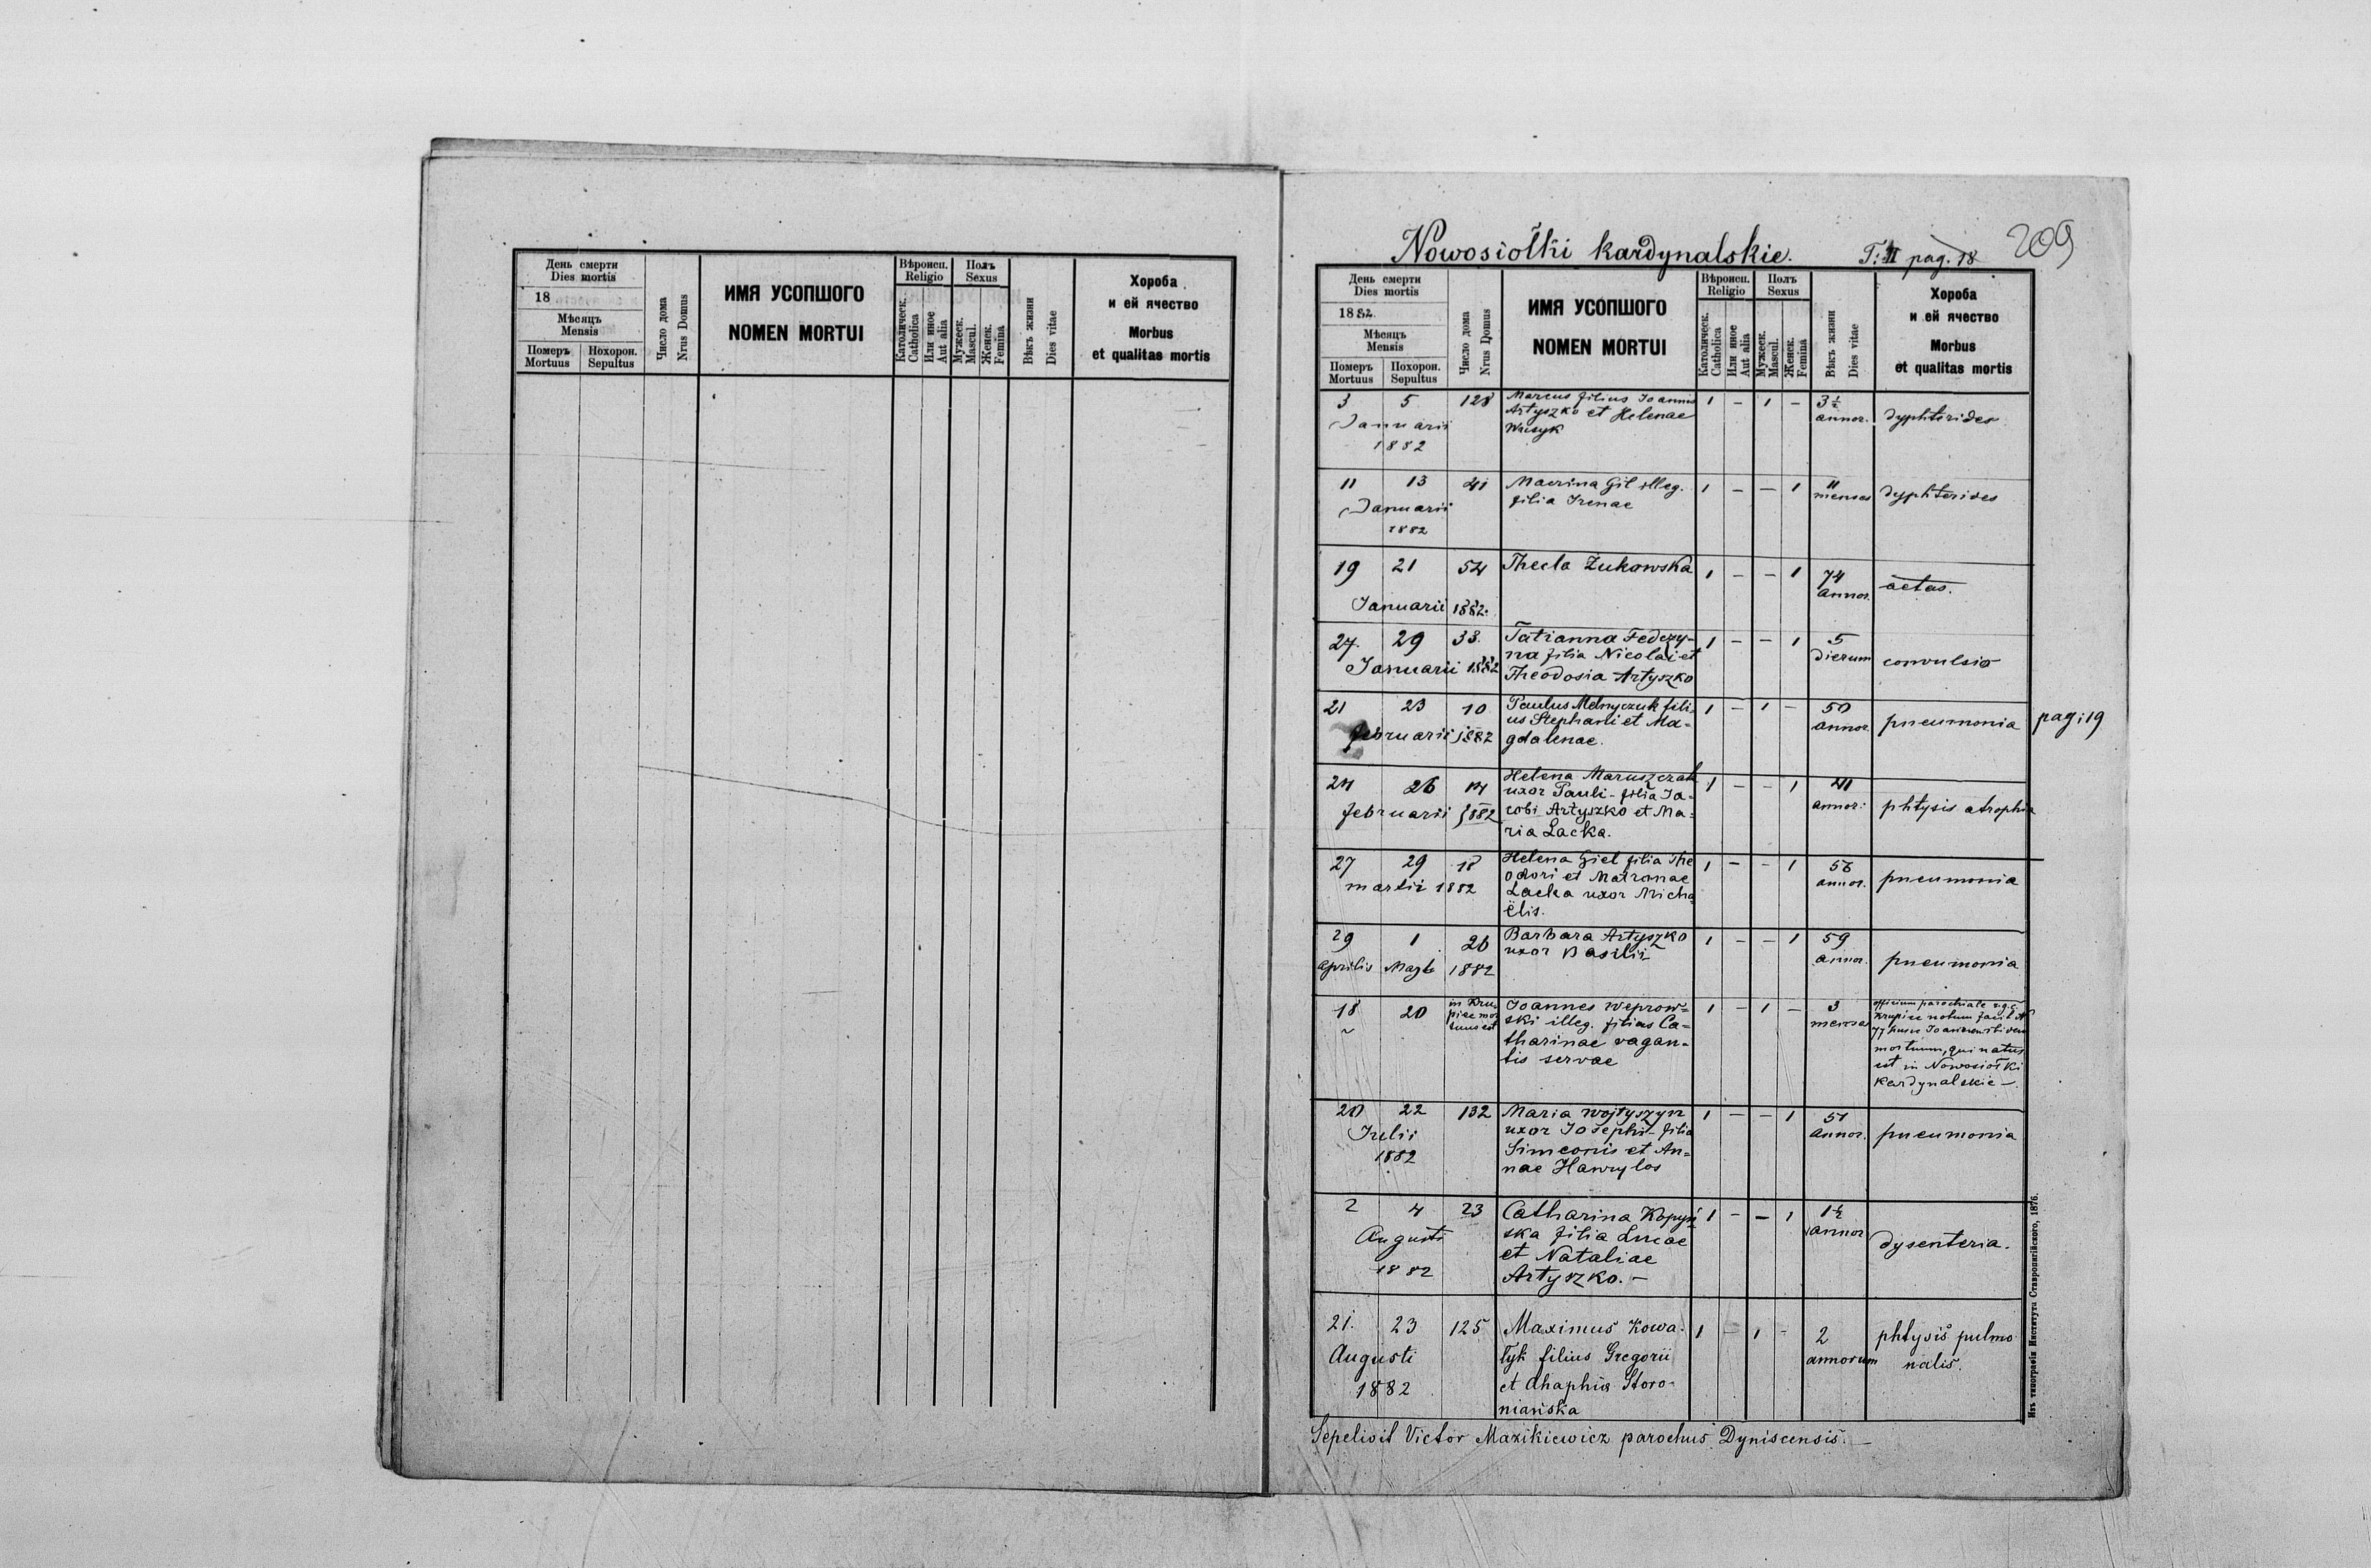 День смерти
Dies mortis
18
Мѣсяцъ
Mensis
Померъ
Mortuus
Похорон.
Sepultus
Число дома
Nrus Domus
ИМЯ УСОПШОГО
NOMEN MORTUI
Вѣроисп.
Religio
Католическ.
Catholica
Или иное
Aut alia
Полъ
Sexus
Мужеск.
Mascul.
Женск.
Femina
Вѣкъ жизни
Dies vitae
Хороба
и ей ячество
Morbus
et qualitas mortis
Nowosiołki kardynalskie.
T: II pag. 18
209
День смерти
Dies mortis
1882.
Мѣсяцъ
Mensis
Померъ
Mortuus
Похорон.
Sepultus
Число дома
Nrus Domus
ИМЯ УСОПШОГО
NOMEN MORTUI
Вѣроисп.
Religio
Католическ.
Catholica
Или иное
Aut alia
Полъ
Sexus
Мужеск.
Mascul.
Женск.
Femina
Вѣкъ жизни
Dies vitae
Хороба
и ей ячество
Morbus
et qualitas mortis
3 5 128 Marcus filius Joannis 1 – 1 – 3½
Artyszko et Helenae annor. dyphterides
Januarii
1882
11 13 41 Macrina Gil illeg. 1 – – 1 11
filia Irenae menses dyphterides
Januarii
1882
19 21 54 Thecla Żukowska 1 – – 1 74
annor. aetas.
Januarii 1882.
27. 29 33. Tatianna Fedczy- 1 – – 1 5
na filia Nicolai et dierum convulsio
Januarii 1882 Theodosia Artyszko
21 23 10 Paulus Melnyczuk fili- 1 – 1 – 50
us Stephani et Ma- annor. pneumonia pag: 19
februarii 1882 gdalenae.
24 26 14 Helena Maruszczak 1 – – 1 41
uxor Pauli - filia Ja- annor: phtysis atrophia
februarii 1882 cobi Artyszko et Ma-
ria Lacka.
27 29 18 Helena Giel filia The 1 – – 1 56
odori et Matronae annor. pneumonia
martii 1882 Lacka uxor Micha
ëlis.
29 1 26 Barbara Artyszko 1 – – 1 59
uxor Basilii annor. pneumonia
aprilis 1882
18 20 in Kru-
Joannes Weprow- 1 – 1 – 3
ski illeg. filius Ca- menses
tharinae vagan-
tis servae
officium parochiale r.g.c.
mortuum, qui natus
est in Nowosiołki
Kardynalskie –.
20 22 132 Maria Wojtyszyn 1 – – 1 51
uxor Josephi - filia annor. pneumonia
Julii Simeonis et An-
1882 nae Hawrylos
2 4 23 Catharina Kopyń 1 – – 1 1½
ska filia Lucae annor
Augusti et Nataliae dysenteria.
1882 Artyszko. –
21. 23 125 Maximus Kowa- 1 – 1 – 2 phtysis pulmo
Augusti łyk filius Gregorii annorum nalis.
1882 et Ahaphia Storo-
niańska
Sepelivit Victor Mazikiewicz parochus Dyniscensis. –
Изъ типографіи Института Ставропигійского, 1876.